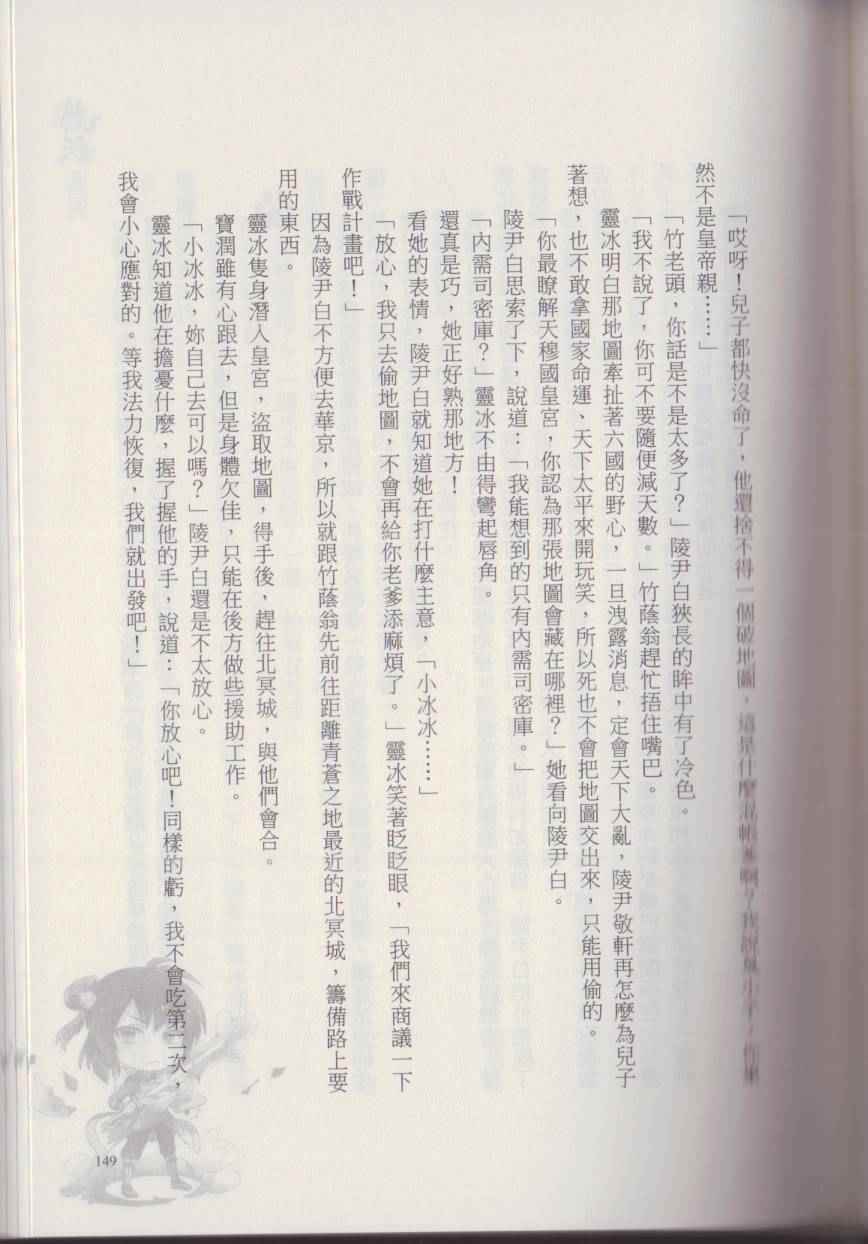 「哎呀！兒子都快沒命了，他還捨不得一個破地圖，這是什麼
然不是皇帝親……」
「竹老頭，你話是不是太多了？」陵尹白狹長的眸中有了冷色。
「我不說了，你可不要隨便減天數。」竹蔭翁趕忙捂住嘴巴。
靈冰明白那地圖牽扯著六國的野心，一旦洩露消息，定會天下大亂，陵尹敬軒再怎麼為兒子
著想，也不敢拿國家命運、天下太平來開玩笑，所以死也不會把地圖交出來，只能用偷的。
「你最瞭解天穆國皇宮，你認為那張地圖會藏在哪裡？」她看向陵尹白。
陵尹白思索了下，說道：「我能想到的只有內需司密庫。」
「內需司密庫？」靈冰不由得彎起唇角。
還真是巧，她正好熟那地方！
看她的表情，陵尹白就知道她在打什麼主意，「小冰冰……」
「放心，我只去偷地圖，不會再給你老爹添麻煩了。」靈冰笑著眨眨眼，「我們來商議一下
作戰計畫吧！」
因為陵尹白不方便去華京，所以就跟竹蔭翁先前往距離青蒼之地最近的北冥城，籌備路上要
用的東西。
靈冰隻身潛入皇宮，盜取地圖，得手後，趕往北冥城，與他們會合。
寶潤雖有心跟去，但是身體欠佳，只能在後方做些援助工作。
「小冰冰，妳自己去可以嗎？」陵尹白還是不太放心。
靈冰知道他在擔憂什麼，握了握他的手，說道：「你放心吧！同樣的虧，我不會吃第二次，
我會小心應對的。等我法力恢復，我們就出發吧！」
149